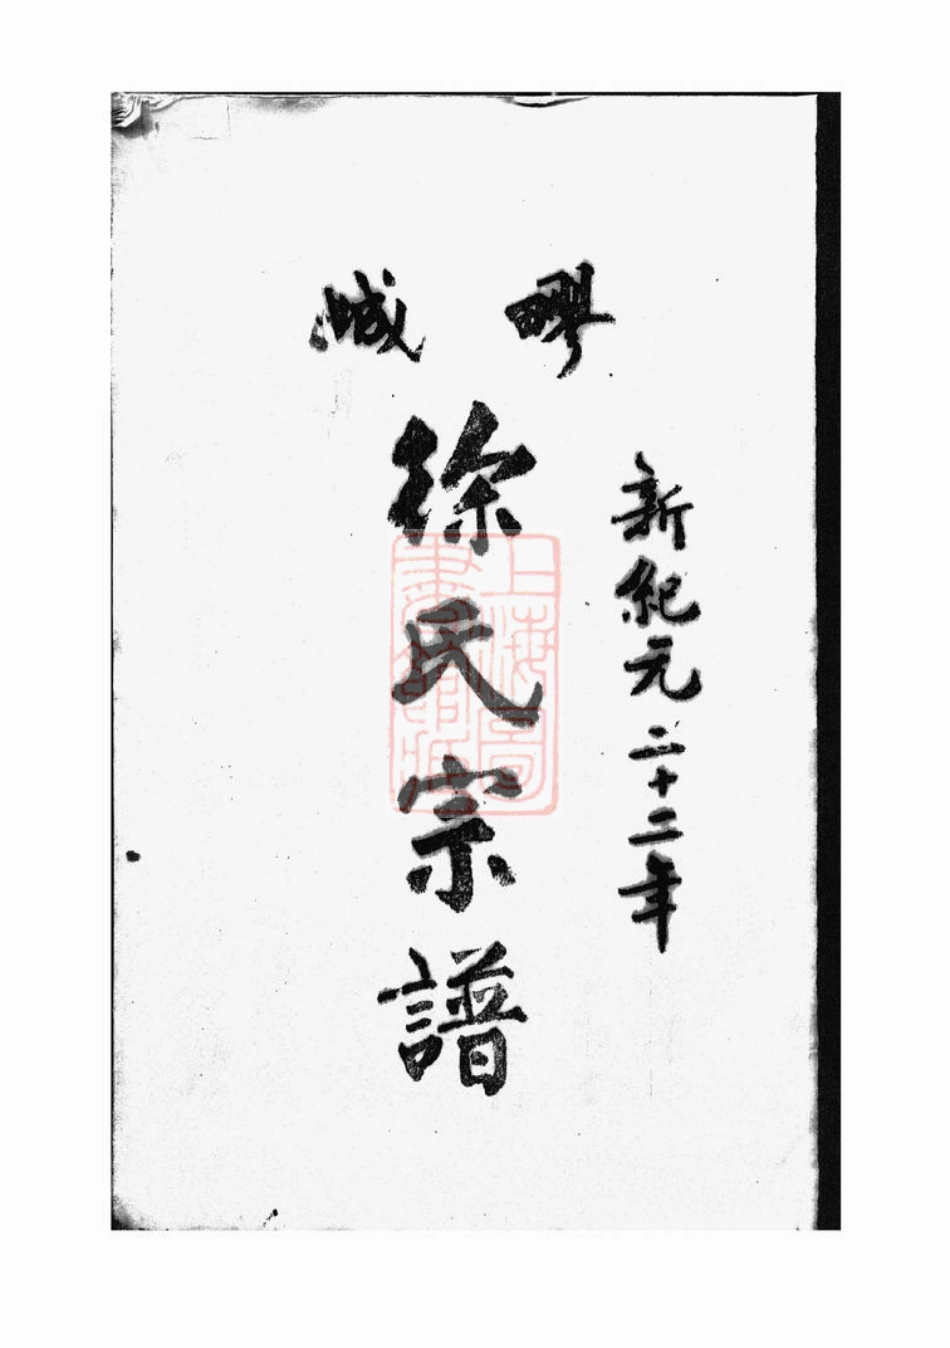 疁城
新紀元二十二年
徐氏宗譜
上海圖
書館藏